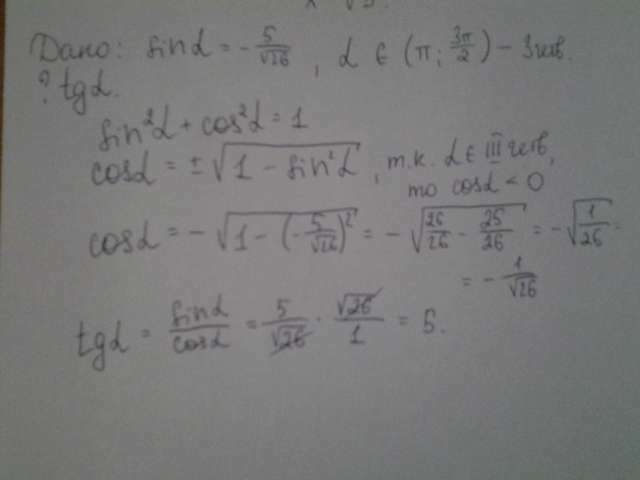 Дано: sin α = -5/√26, α ∈ (π; 3π/2) - 3 четв.
? tg α.
sin²α + cos²α = 1
cos α = ±√(1 - sin²α), т.к. α ∈ III четв,
то cos α < 0
cos α = -√(1 - (-5/√26)²) = -√(26/26 - 25/26) = -√(1/26) =
= -1/√26
tg α = sin α/cos α = 5/√26 · √26/1 = 5.